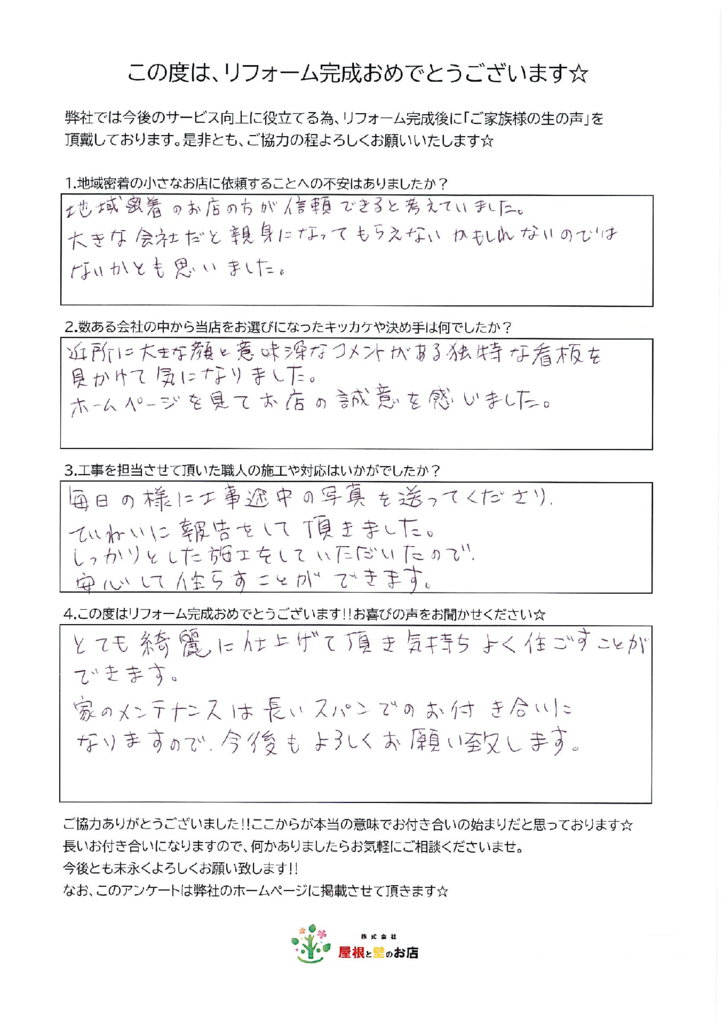 この度は、リフォーム完成おめでとうございます☆
弊社では今後のサービス向上に役立てる為、リフォーム完成後に「ご家族様の生の声」を
頂戴しております。是非とも、ご協力の程よろしくお願いいたします☆
1.地域密着の小さなお店に依頼することへの不安はありましたか？
地域密着のお店の方が信頼できると考えていました。
大きな会社だと親身になってもらえないかもしれないのでは
ないかとも思いました。
2.数ある会社の中から当店をお選びになったキッカケや決め手は何でしたか？
近所に大きな顔と意味深なコメントがある独特な看板を
見かけて気になりました。
ホームページを見てお店の誠意を感じました。
3.工事を担当させて頂いた職人の施工や対応はいかがでしたか？
毎日の様に工事途中の写真を送ってくださり、
ていねいに報告をして頂きました。
しっかりとした施工をしていただいたので、
安心して住らすことができます。
4.この度はリフォーム完成おめでとうございます!!お喜びの声をお聞かせください☆
とても綺麗に仕上げて頂き気持ちよく住ごすことが
できます。
家のメンテナンスは長いスパンでのお付き合いに
なりますので、今後もよろしくお願い致します。
ご協力ありがとうございました!!ここからが本当の意味でお付き合いの始まりだと思っております☆
長いお付き合いになりますので、何かありましたらお気軽にご相談くださいませ。
今後とも末永くよろしくお願い致します!!
なお、このアンケートは弊社のホームページに掲載させて頂きます☆
株式会社
屋根と壁のお店